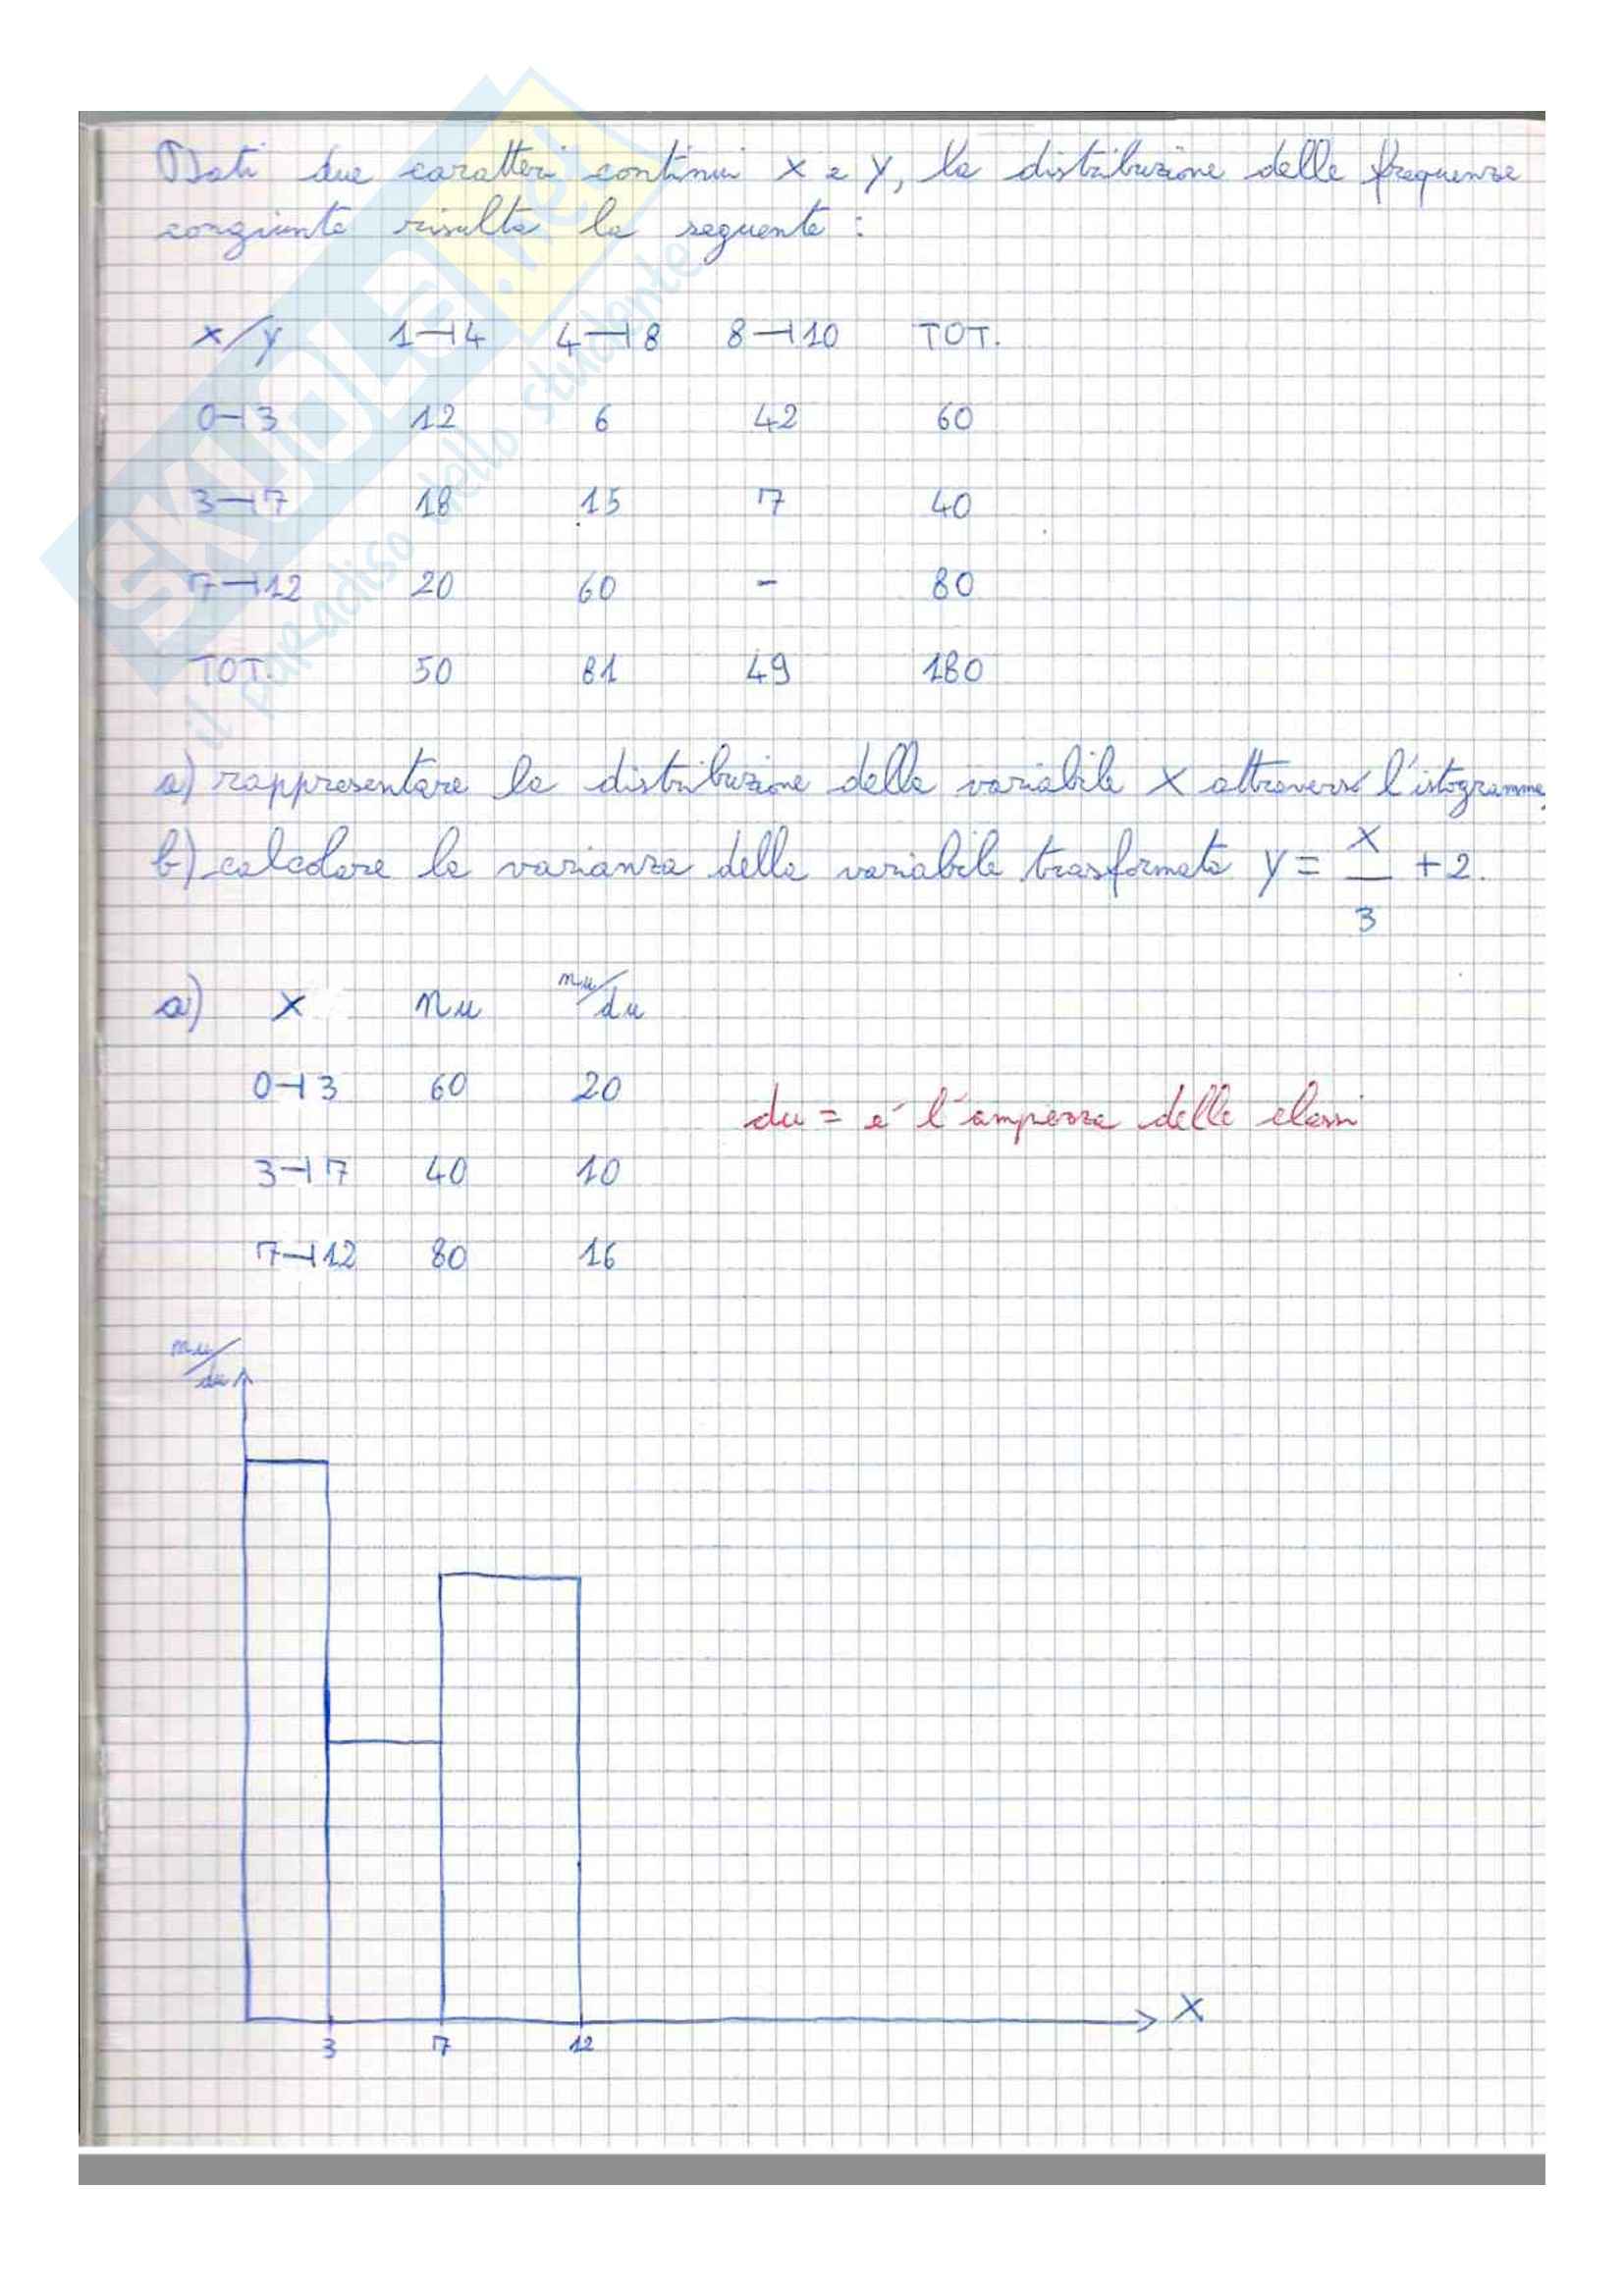 Dati due caratteri continui X e Y, la distribuzione delle frequenze
congiunte risulta la seguente:
X/Y 1⊣4 4⊣8 8⊣10 TOT.
0⊣3 12 6 42 60
3⊣7 18 15 7 40
7⊣12 20 60 - 80
TOT. 50 81 49 180
a) rappresentare la distribuzione della variabile X attraverso l'istogramma.
b) calcolare la varianza della variabile trasformata Y = X/3 + 2.
a) X nu nu/du
0⊣3 60 20
du = è l'ampiezza delle classi
3⊣7 40 10
7⊣12 80 16
nu/du
X
3 7 12
SKUOLA.net
il paradiso dello studente